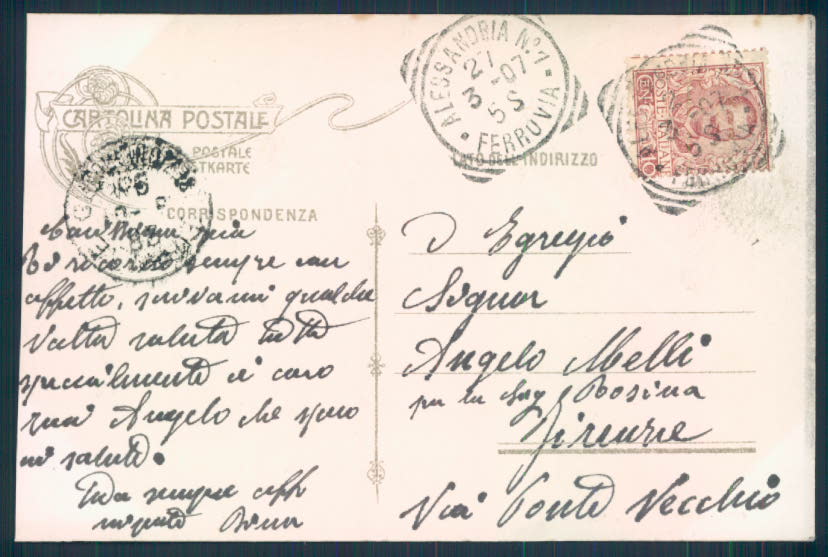 CARTOLINA POSTALE
POSTALE
TKARTE
CORRISPONDENZA
LATO DELL'INDIRIZZO
ALESSANDRIA N.1
21
3 07
5 S
FERROVIA
POSTE ITALIANE
CENT. 10
mia
Ti ricordo sempre con
affetto, scrivimi qualche
volta saluta tutti
specialmente il caro
Angelo che spero
in salute.
Tua sempre aff
nipote
Egregio
Signor
Angelo Melli
per la Sig Rosina
Firenze
Via Ponte Vecchio